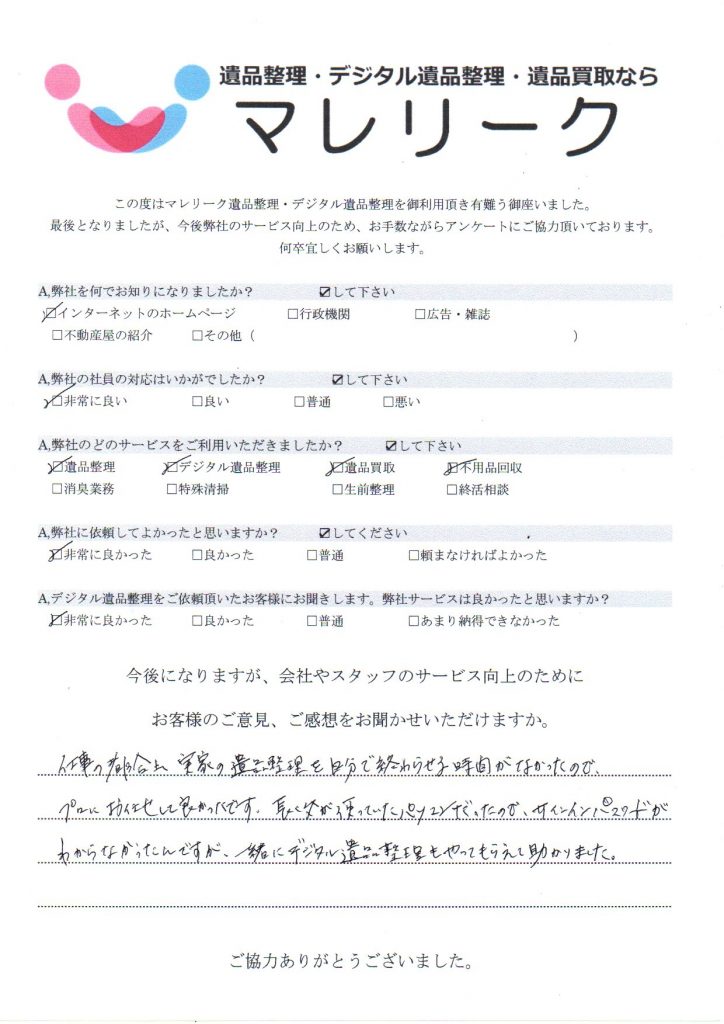 遺品整理・デジタル遺品整理・遺品買取なら
マレリーク
この度はマレリーク遺品整理・デジタル遺品整理を御利用頂き有難う御座いました。
最後となりましたが、今後弊社のサービス向上のため、お手数ながらアンケートにご協力頂いております。
何卒宜しくお願いします。
A,弊社を何でお知りになりましたか？ ☑して下さい
☑インターネットのホームページ □行政機関 □広告・雑誌
□不動産屋の紹介 □その他（ ）
A,弊社の社員の対応はいかがでしたか？ ☑して下さい
☑非常に良い □良い □普通 □悪い
A,弊社のどのサービスをご利用いただきましたか？ ☑して下さい
☑遺品整理 ☑デジタル遺品整理 ☑遺品買取 ☑不用品回収
□消臭業務 □特殊清掃 □生前整理 □終活相談
A,弊社に依頼してよかったと思いますか？ ☑してください
☑非常に良かった □良かった □普通 □頼まなければよかった
A,デジタル遺品整理をご依頼頂いたお客様にお聞きします。弊社サービスは良かったと思いますか？
☑非常に良かった □良かった □普通 □あまり納得できなかった
今後になりますが、会社やスタッフのサービス向上のために
お客様のご意見、ご感想をお聞かせいただけますか。
仕事の都合上 実家の遺品整理を自分で終わらせる時間がなかったので、
プロにお任せして良かったです。父が使っていたパソコンだったので、サインインパスワードが
わからなかったんですが、一緒にデジタル遺品整理もやってもらえて助かりました。
ご協力ありがとうございました。